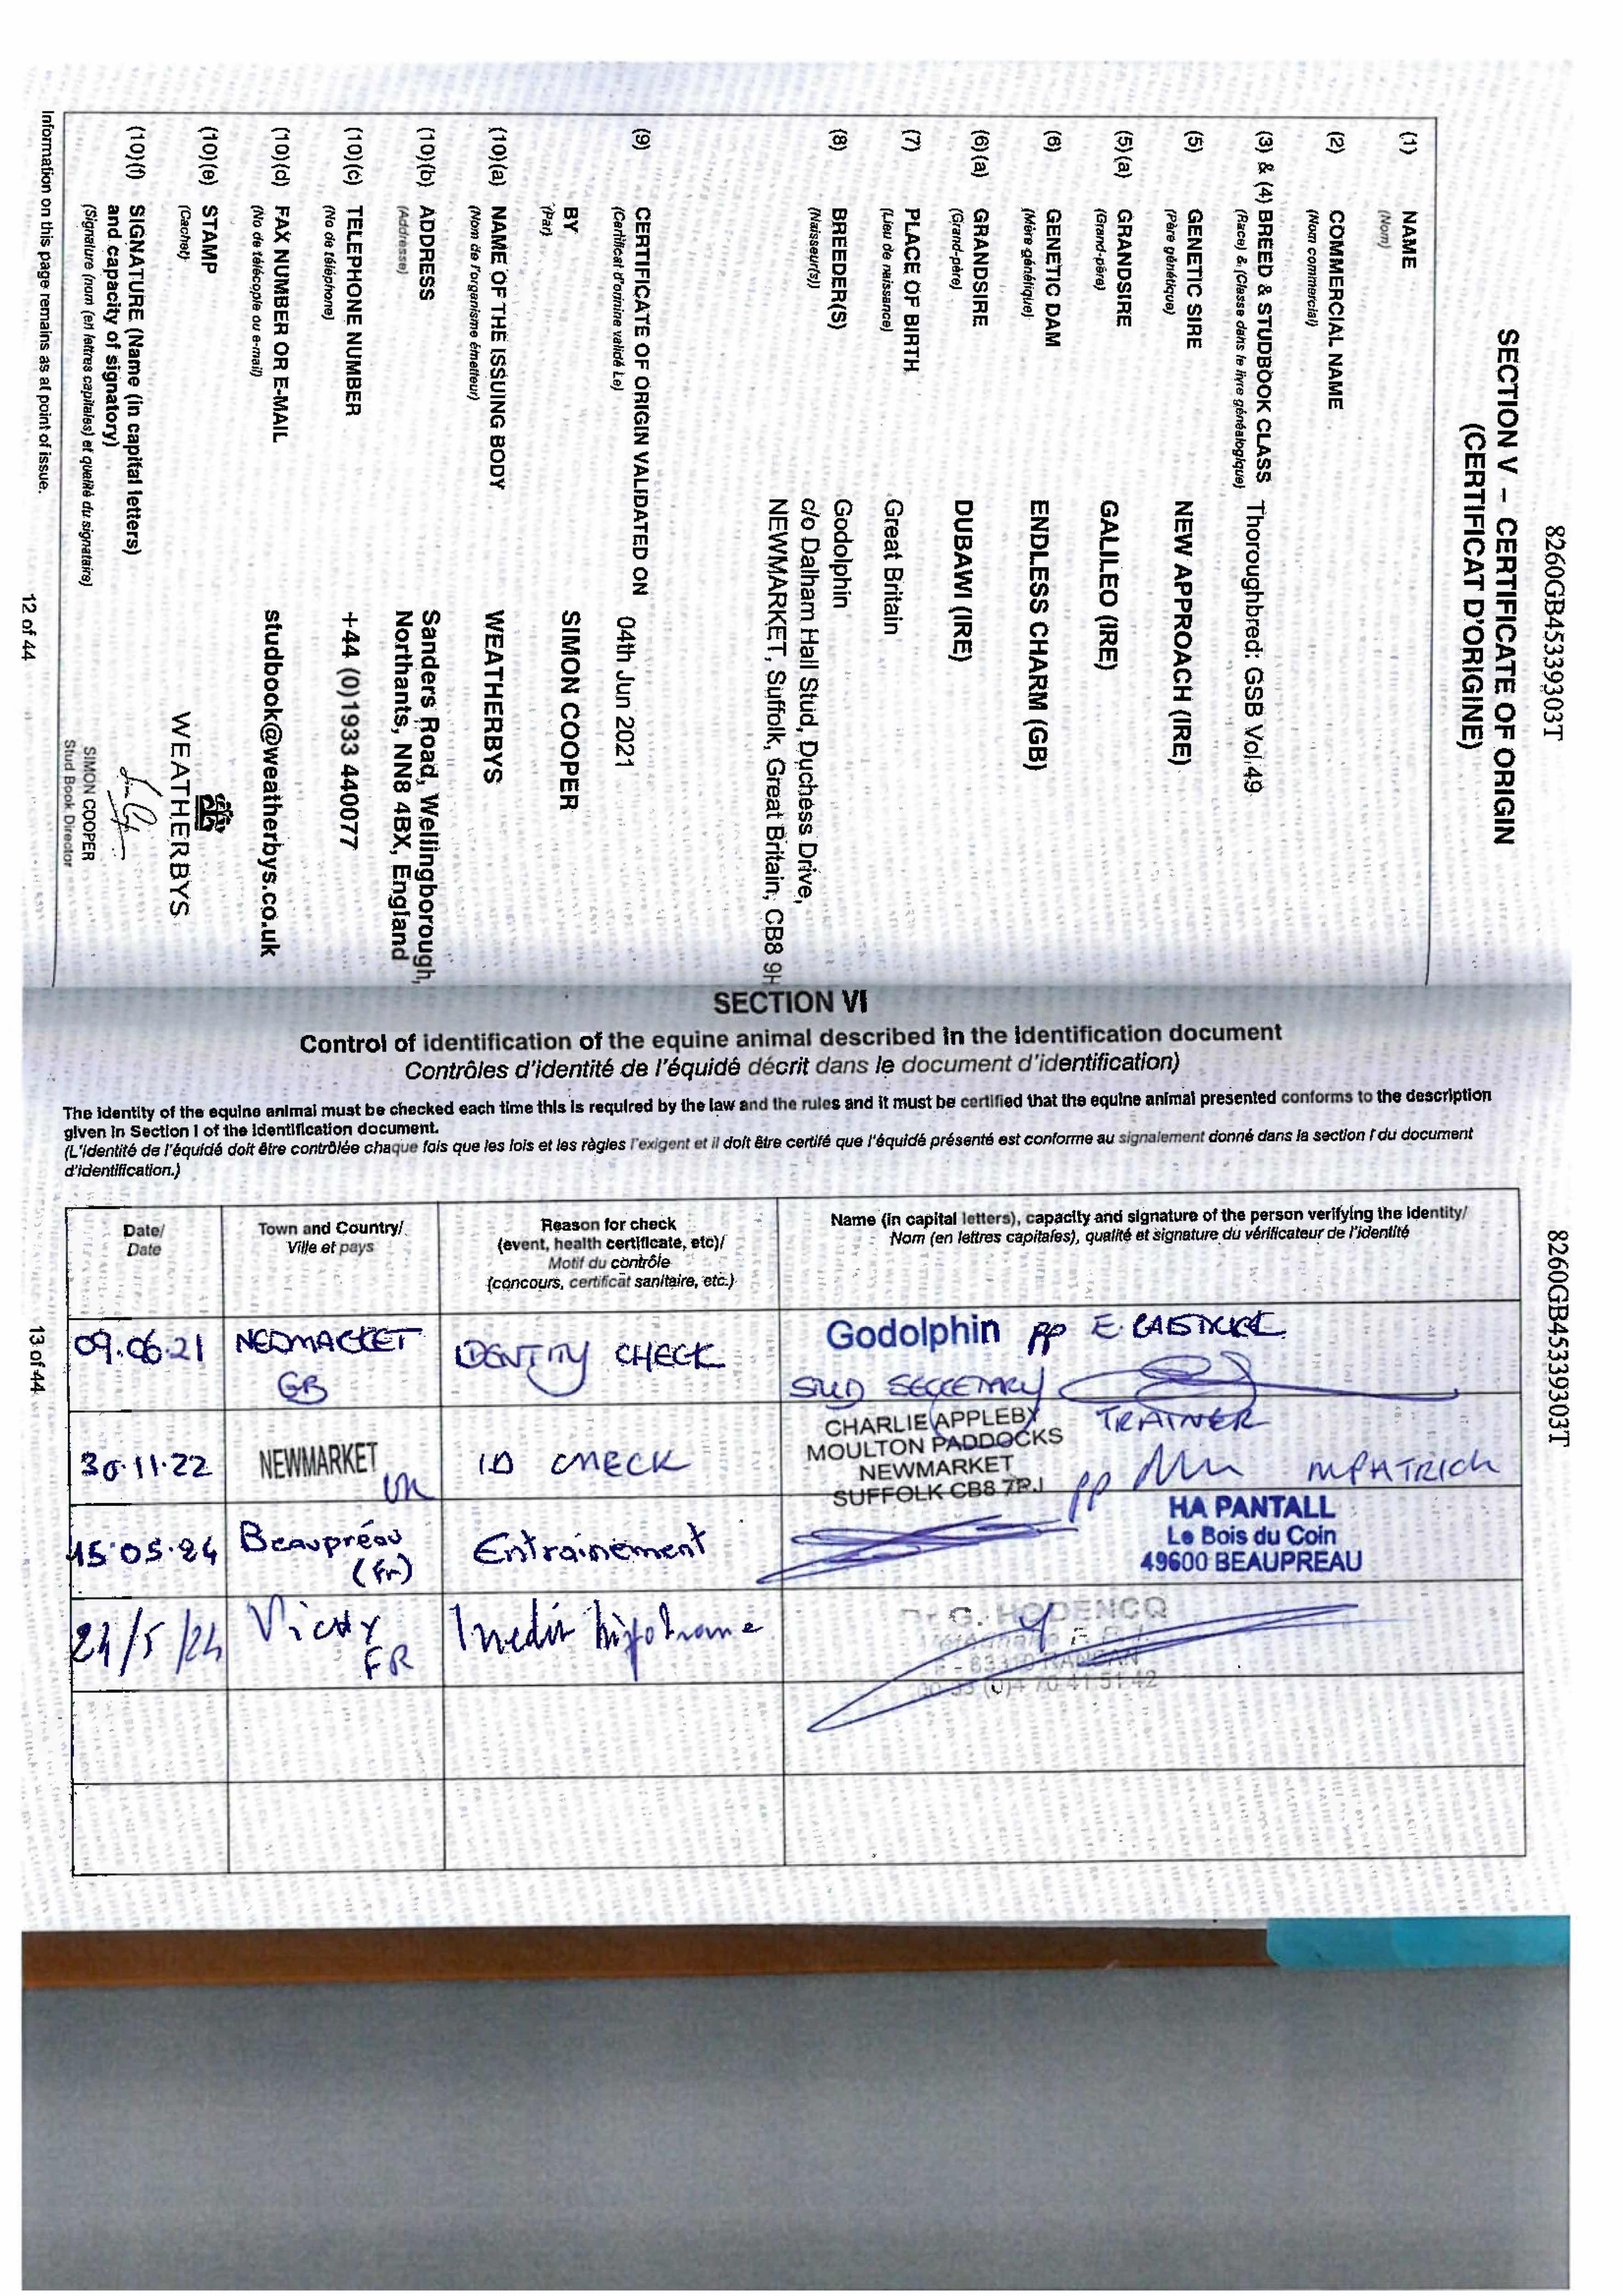 8260GB45339303T
SECTION V – CERTIFICATE OF ORIGIN
(CERTIFICAT D'ORIGINE)
(1) NAME
(Nom)
(2) COMMERCIAL NAME
(Nom commercial)
(3) & (4) BREED & STUDBOOK CLASS Thoroughbred: GSB Vol.49
(Race) & (Classe dans le livre généalogique)
(5) GENETIC SIRE NEW APPROACH (IRE)
(Père génétique)
(5)(a) GRANDSIRE GALILEO (IRE)
(Grand-père)
(6) GENETIC DAM ENDLESS CHARM (GB)
(Mère génétique)
(6)(a) GRANDSIRE DUBAWI (IRE)
(Grand-père)
(7) PLACE OF BIRTH Great Britain
(Lieu de naissance)
(8) BREEDER(S) Godolphin
(Naisseur(s)) c/o Dalham Hall Stud, Duchess Drive,
NEWMARKET, Suffolk, Great Britain, CB8 9H
(9) CERTIFICATE OF ORIGIN VALIDATED ON 04th Jun 2021
(Certificat d'orinine validé Le)
BY SIMON COOPER
(Par)
(10)(a) NAME OF THE ISSUING BODY WEATHERBYS
(Nom de l'organisme émetteur)
(10)(b) ADDRESS Sanders Road, Wellingborough,
(Addresse) Northants, NN8 4BX, England
(10)(c) TELEPHONE NUMBER +44 (0)1933 440077
(No de téléphone)
(10)(d) FAX NUMBER OR E-MAIL studbook@weatherbys.co.uk
(No de télécopie ou e-mail)
(10)(e) STAMP
(Cachet) WEATHERBYS
(10)(f) SIGNATURE (Name (in capital letters)
and capacity of signatory)
(Signature (nom (en lettres capitales) et qualité du signataire)
SIMON COOPER
Stud Book Director
Information on this page remains as at point of issue.
12 of 44
SECTION VI
Control of identification of the equine animal described in the identification document
Contrôles d'identité de l'équidé décrit dans le document d'identification)
The identity of the equine animal must be checked each time this is required by the law and the rules and it must be certified that the equine animal presented conforms to the description
given in Section I of the identification document.
(L'identité de l'équidé doit être contrôlée chaque fois que les lois et les règles l'exigent et il doit être certifé que l'équidé présenté est conforme au signalement donné dans la section I du document
d'identification.)
8260GB45339303T
Date/
Date
Town and Country/
Ville et pays
Reason for check
(event, health certificate, etc)/
Motif du contrôle
(concours, certificat sanitaire, etc.)
Name (in capital letters), capacity and signature of the person verifying the identity/
Nom (en lettres capitales), qualité et signature du vérificateur de l'identité
09.06.21 NEWMARKET
GB
IDENTITY CHECK
Godolphin pp E.
STUD SECRETARY
30.11.22 NEWMARKET
UK
ID CHECK
CHARLIE APPLEBY TRAINER
MOULTON PADDOCKS
NEWMARKET
SUFFOLK CB8 7PJ pp
15.05.24 Beaupréau
(Fr)
Entrainement
HA PANTALL
Le Bois du Coin
49600 BEAUPREAU
21/5/24 Vichy
FR
Dr G. HODENCQ
13 of 44